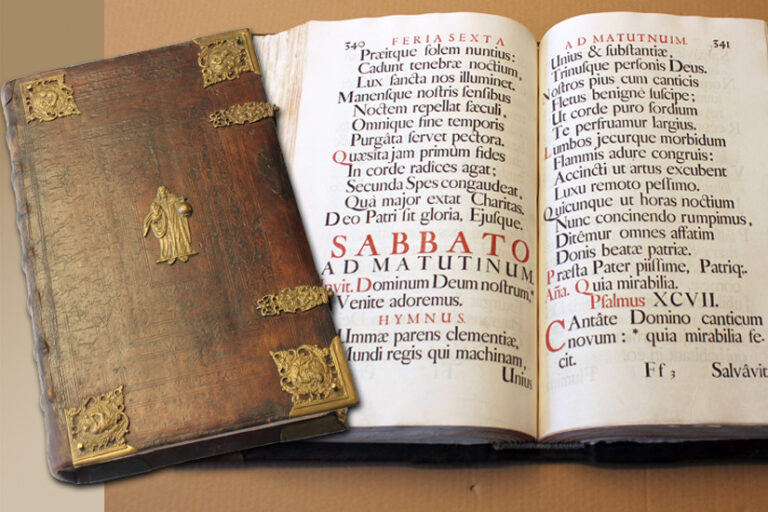 340 FERIA SEXTA
Præitque solem nuntius:
Cadunt tenebræ noctium,
Lux sancta nos illuminet.
Manensque nostris sensibus
Noctem repellat sæculi,
Omnique fine temporis
Purgâta servet pectora.
Quæsita jam primum fides
In corde radices agat;
Secunda Spes congaudeat,
Quâ major extat Charitas.
Deo Patri sit gloria, Ejusq́ue.
SABBATO
AD MATUTINUM.
Invit. Dominum Deum nostrum,*
Venite adoremus.
HYMNUS.
Summæ parens clementiæ,
Mundi regis qui machinam,
Unius
AD MATUTNUIM. 341
Unius & substantiæ,
Trinusque personis Deus.
Nostros pius cum canticis
Fletus benignè suscipe;
Ut corde puro sordium
Te perfruamur largius.
Lumbos jecurque morbidum
Flammis adure congruis:
Accincti ut artus excubent
Luxu remoto pessimo.
Quicunque ut horas noctium
Nunc concinendo rumpimus,
Ditêmur omnes affatim
Donis beatæ patriæ.
Præsta Pater piissime, Patriq;.
Aña. Quia mirabilia.
Psalmus XCVII.
CAntâte Domino canticum
novum: * quia mirabilia fe-
cit.
Ff 3 Salvâvit